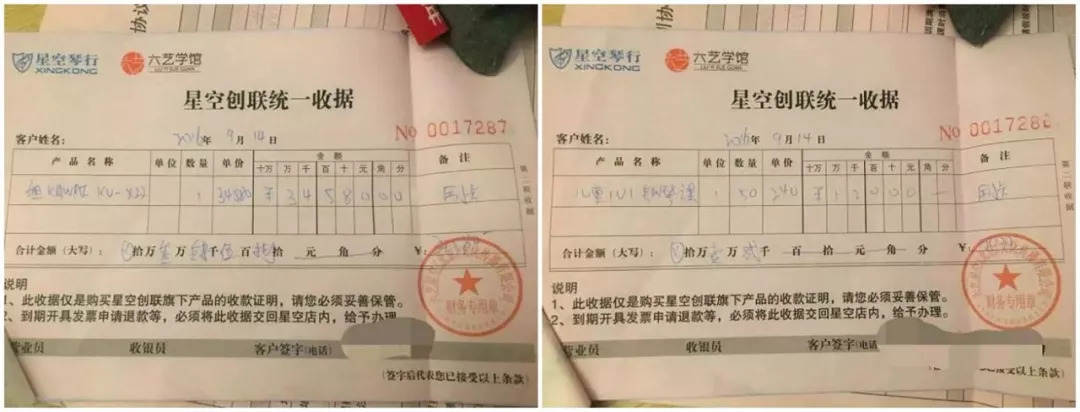 星空琴行 六艺学馆
XINGKONG LIU YI XUE GUAN
星空创联统一收据
客户姓名: 2016年9月14日 No 0017287
产品名称 单位 数量 单价 金额 备注
十万 万 千 百 十 元 角 分
1 34580 ¥ 3 4 5 8 0 0 0
合计金额(大写): 拾万 万 千 百 拾 元 角 分 ¥:
第二联收据
财务专用章
说明
1、此收据仅是购买星空创联旗下产品的收款证明,请您必须妥善保管。
2、到期开具发票申请退款等,必须将此收据交回星空店内,给予办理。
营业员 收银员 客户签字(电话)
(签字后代表您已接受以上条款)
星空琴行 六艺学馆
XINGKONG LIU YI XUE GUAN
星空创联统一收据
客户姓名: 2016年9月14日 No 001728
产品名称 单位 数量 单价 金额 备注
十万 万 千 百 十 元 角 分
儿童1V1钢琴课 1 50 240 ¥ 1 2 0 0 0 —
合计金额(大写): 拾万 万 千 百 拾 元 角 分 ¥:
第二联收据
财务专用章
说明
1、此收据仅是购买星空创联旗下产品的收款证明,请您必须妥善保管。
2、到期开具发票申请退款等,必须将此收据交回星空店内,给予办理。
营业员 收银员 客户签字(电话)
(签字后代表您已接受以上条款)